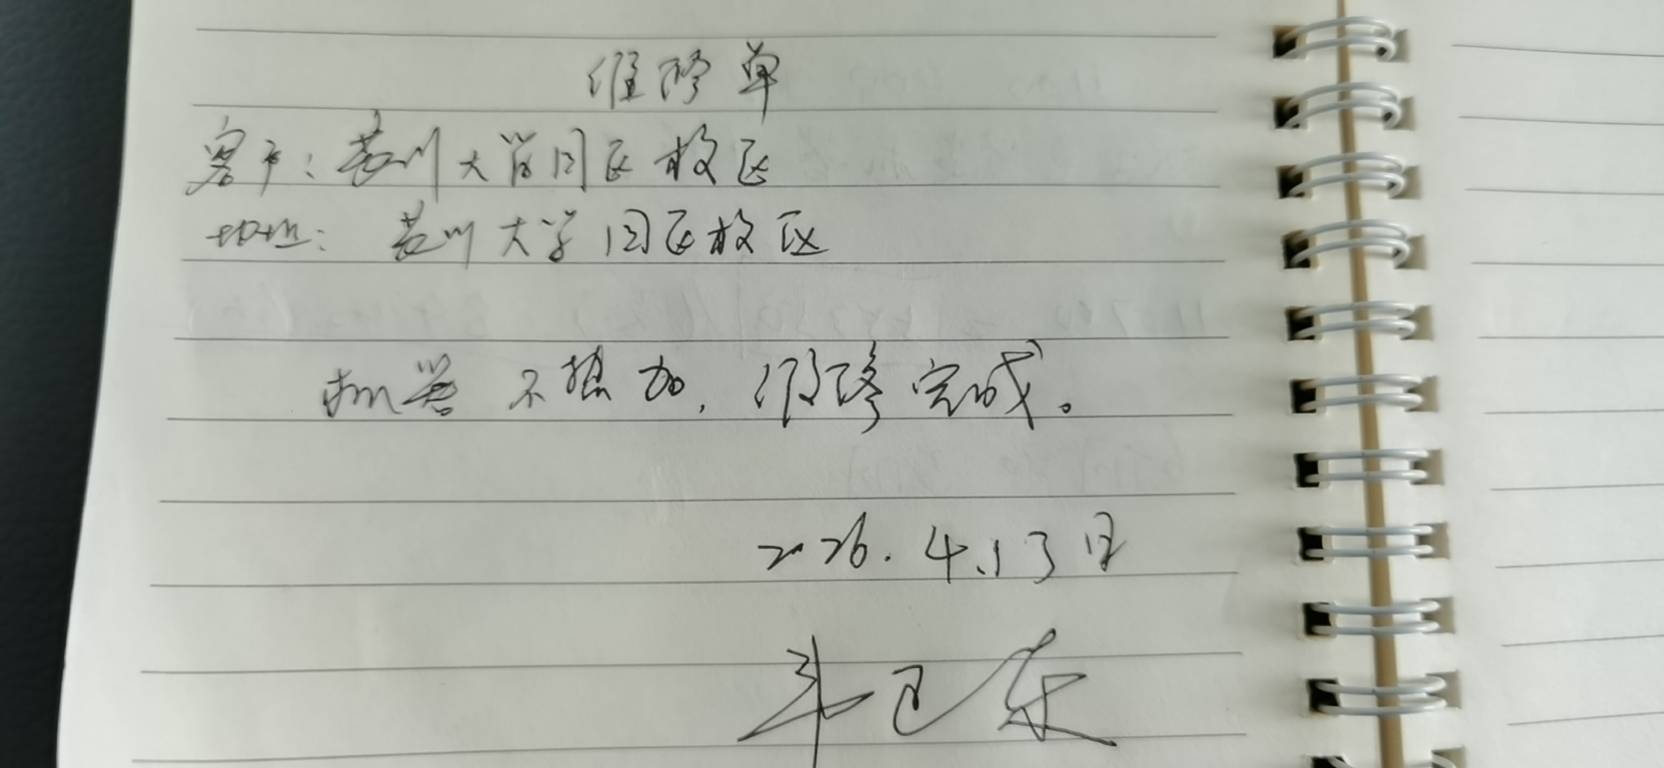 维修单
客户：苏州大学园区校区
地址：苏州大学园区校区
机器不想加，维修完成。
2026.4.13日